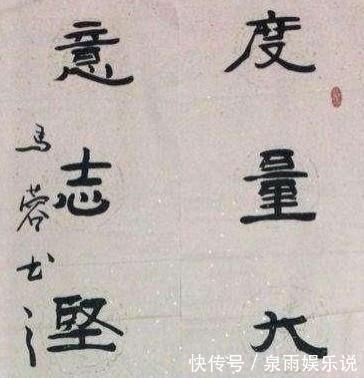 度量大
意志坚
马蓉书
快传号 / 泉雨娱乐说